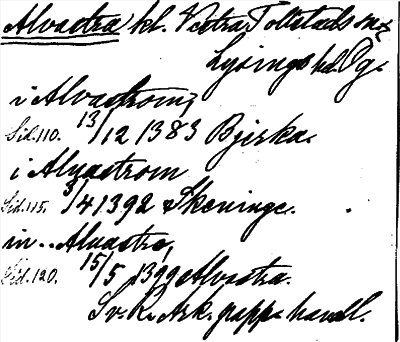 Alvastra kl. Vestra Tollstads sn,
Lysings hd. Ög.
i Alvastrom,
Sid. 110. 13/12 1383 Bjerka.
i Alvastrom
Sid. 115. 3/4 1392 Skeninge.
in .. Alvastra,
Sid. 120. 15/5 1399 Alvastra.
Sv. R. Ark. papps handl.